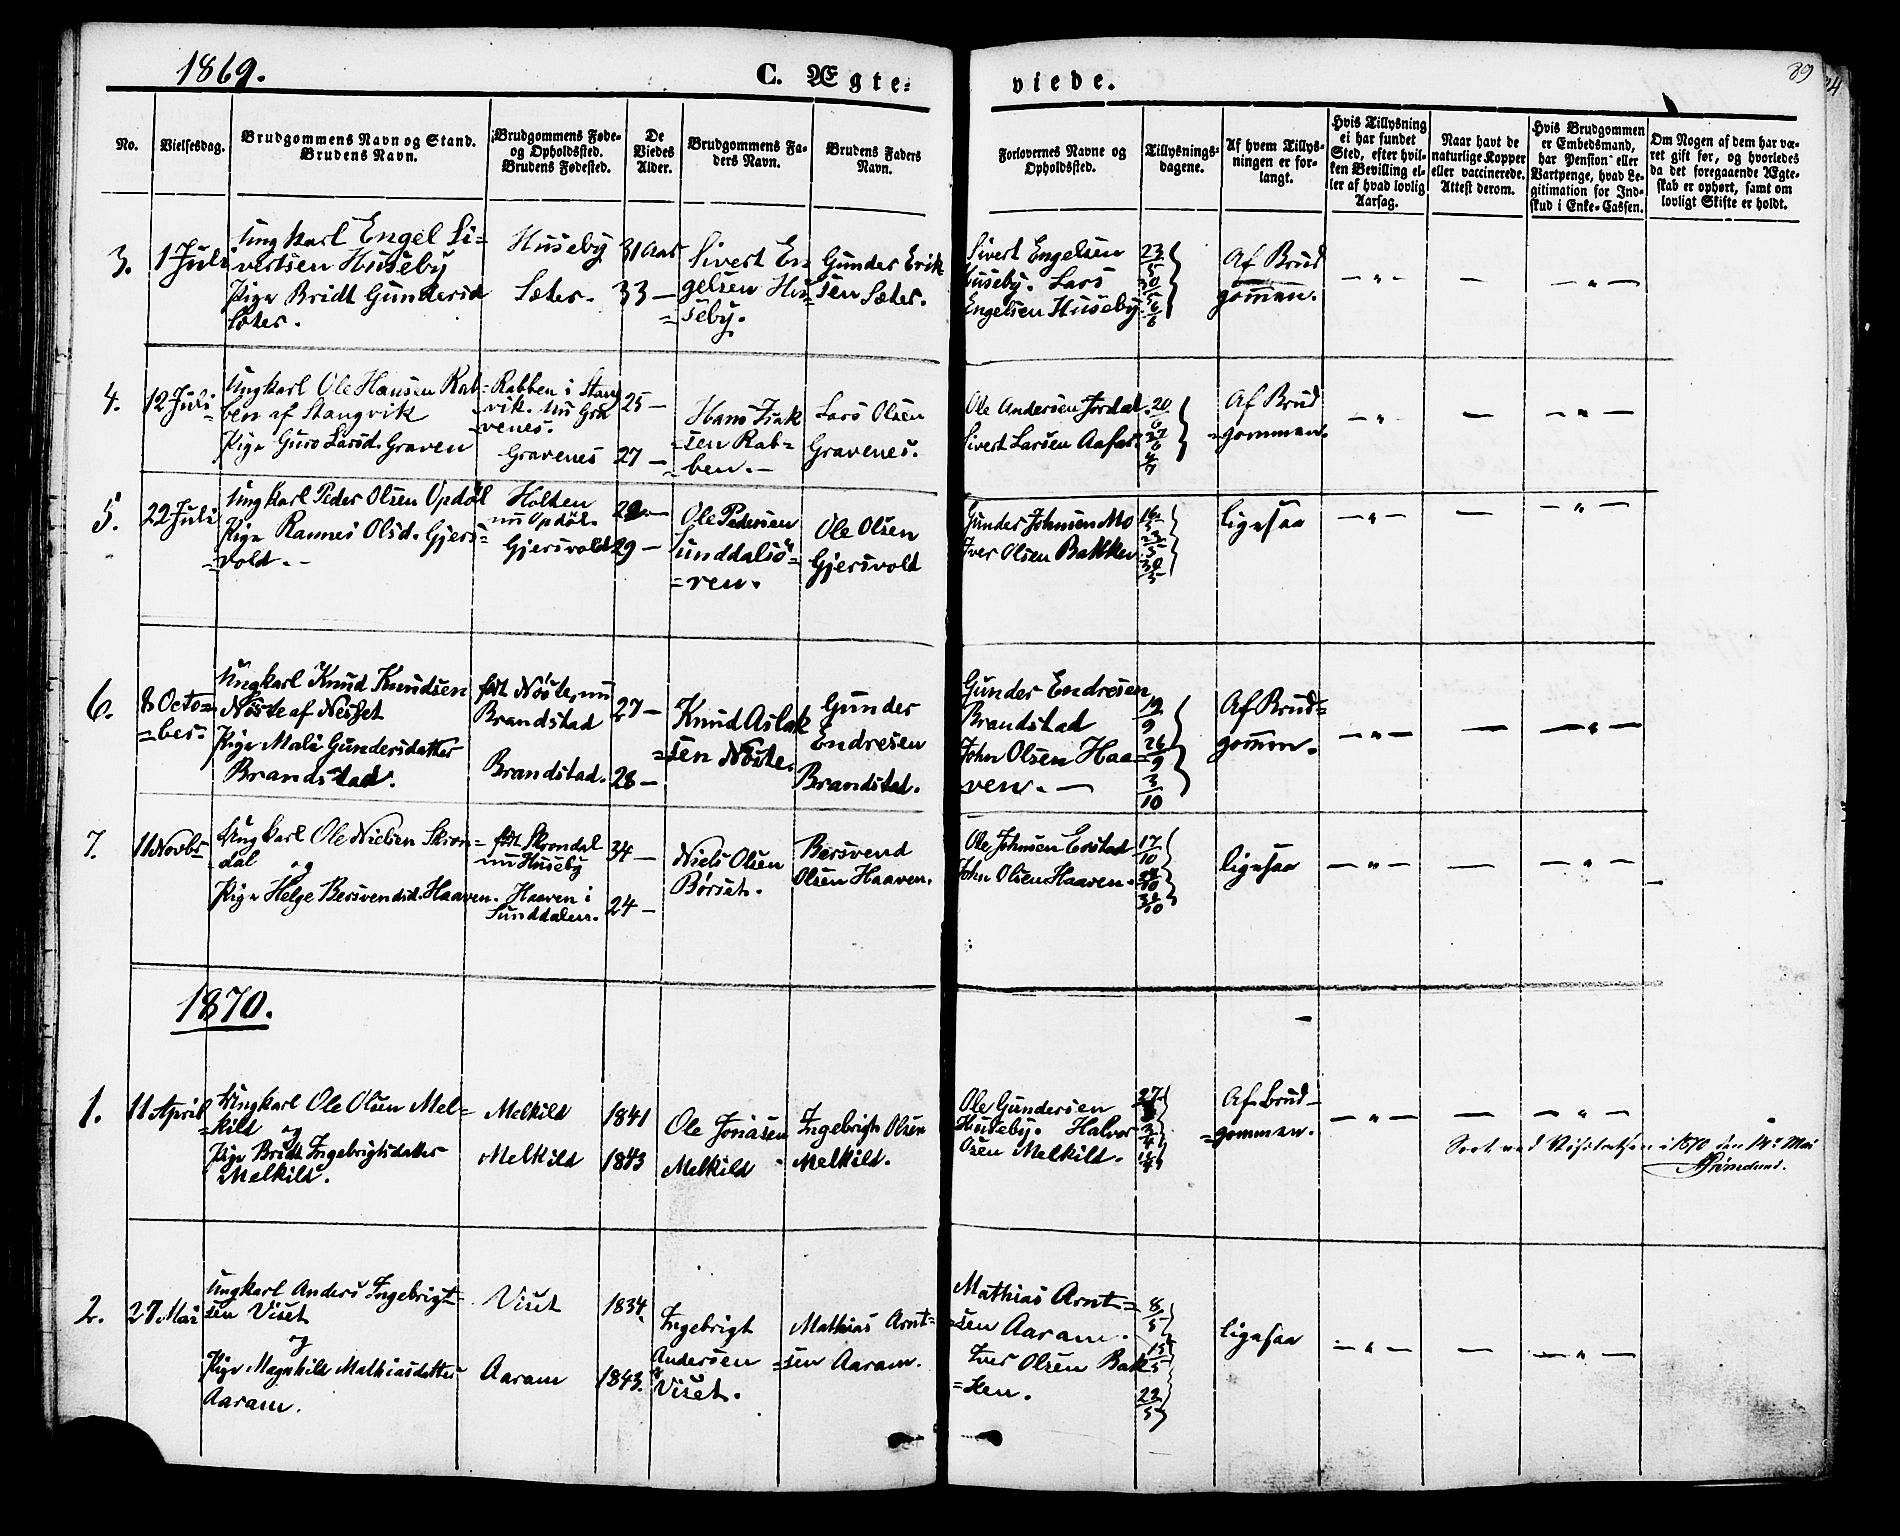 1869.
C. Ægte-
viede.
89
No.
Vielsesdag.
Brudgommens Navn og Stand.
Brudens Navn.
Brudgommens Føde-
og Opholdssted.
Brudens Fødested.
De
Viedes
Alder.
Brudgommens Fa-
ders Navn.
Brudens Faders
Navn.
Forlovernes Navne og
Opholdssted.
Tillysnings-
dagene.
Af hvem Tillys-
ningen er for-
langt.
Hvis Tillysning
ei har fundet
Sted, efter hvil-
ken Bevilling el-
ler af hvad lovlig
Aarsag.
Naar havt de
naturlige Kopper
eller vaccinerede.
Attest derom.
Hvis Brudgommen
er Embedsmand,
har Pension eller
Vartpenge, hvad Le-
gitimation for Ind-
skud i Enke-Cassen.
Om Nogen af dem har væ-
ret gift før, og hvorledes
da det foregaaende Ægte-
skab er ophørt, samt om
lovligt Skifte er holdt.
3.
1 Juli
Ungkarl Engel Si=
vertsen Huseby
Pige Bridt Gundersd
Sæter.
Huseby
Sæter.
31 Aar
33 —
Sivert En
gelsen Hu=
=seby.
Gunder Erik
sen Sæter.
Sivert Engelsen
Huseby. Lars
Engelsen Huseby.
23/5
30/5
6/6
Af Brud
gommen.
4.
12 Juli
Ungkarl Ole Hansen Rab=
ben af Stangvik
Pige Guro Larsd. Graven
Rabben i Stang
vik. nu Gra
venes.
Gravenes
25 —
27 —
Hans Isak
=sen Rab=
=ben. —
Lars Olsen
Gravenes.
Ole Andersen Jordal.
Sivert Larsen Aafar.
20/6
27/6
4/7
Af Brud
=gommen.
5.
22 Juli
Ungkarl Peder Olsen Opdøl
Pige Rannei Olsd. Gjers=
=vold. —
Holten
nu Opdøl.
Gjersvold
29 —
Ole Pedersen
Sunddalsö=
=ren.
Ole Olsen
Gjersvold
Gunder Johnsen Mo
Iver Olsen Bakken
16/5
23/5
30/5
ligesaa
6.
8 Octo=
=ber.
Ungkarl Knud Knudsen
Nöste af Nesset
Pige Mali Gundersdatter
Brandstad.
født Nöste, nu
Brandstad
Brandstad.
27 —
28 —
Knud Aslak
=sen Nöste.
Gunder
Endresen
Brandstad.
Gunder Endresen
Brandstad
John Olsen Haa=
ven. —
19/9
26/9
3/10
Af Brud=
gommen.
7.
11 Novbr
Ungkarl Ole Nielsen Skron=
dal
og
Pige Helge Bersvendsd. Haaven.
født Skrondal
nu Huseby
Haaven i
Sunddalen.
34 —
24 —
Niels Olsen
Børset.
Bersvend
Olsen Haaven.
Ole Johnsen Erstad
John Olsen Haaven.
17/10
24/10
ligesaa
1870.
1.
11 April
Ungkarl Ole Olsen Mel=
=kild
og
Pige Bridt Ingebrigtsdatter
Melkild.
Melkild
Melkild
1841
1843
Ole Jonasen
Melkild
Ingebrigt Olsen
Melkild.
Ole Gundersen
Huseby. Halvor
Olsen Melkild.
3/4
Af Brud=
=gommen.
2.
27 Mai
Ungkarl Anders Ingebrigt=
sen Viset
og
Pige Magnhild Mathiasdatter
Aaram.
Viset
Aaram
1834.
1843.
Ingebrigt
Andersen
Viset.
Mathias Arnt=
=sen Aaram.
Mathias Arnt=
=sen Aaram.
Iver Olsen Bak
=ken.
8/5
15/5
22/5
ligesaa